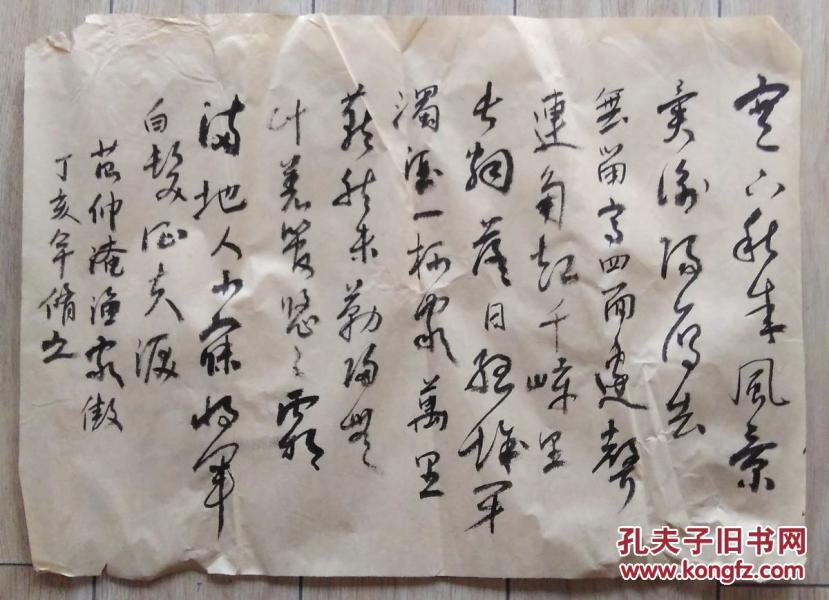 塞下秋來風景
異衡陽雁去
無留意四面邊聲
連角起千嶂里
長烟落日孤城閉
濁酒一杯家萬里
燕然未勒歸無
计羌管悠〻霜
滿地人不寐將軍
白髮征夫淚
范仲淹漁家傲
丁亥年脩
孔夫子旧书网
www.kongfz.com